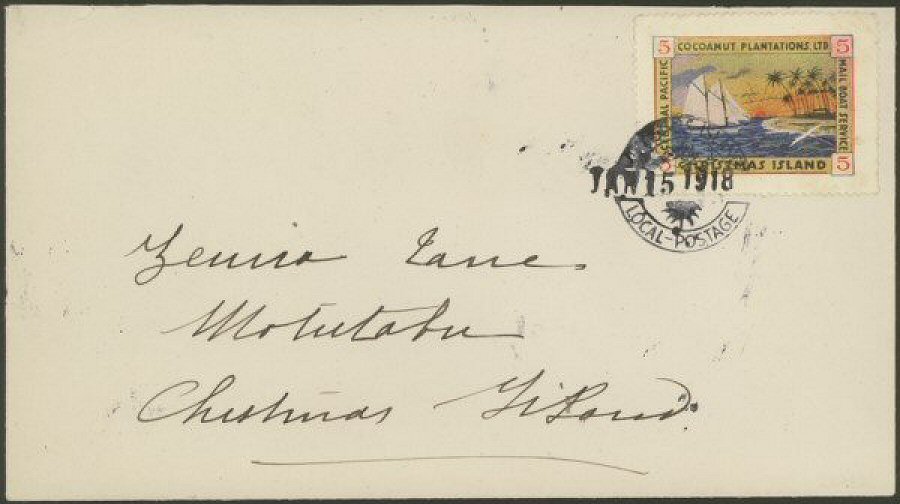 5 COCOANUT PLANTATIONS LTD 5
CENTRAL PACIFIC
MAIL BOAT SERVICE
5 CHRISTMAS ISLAND 5
JAN 15 1918
LOCAL-POSTAGE
Motutabu
Christmas Island.